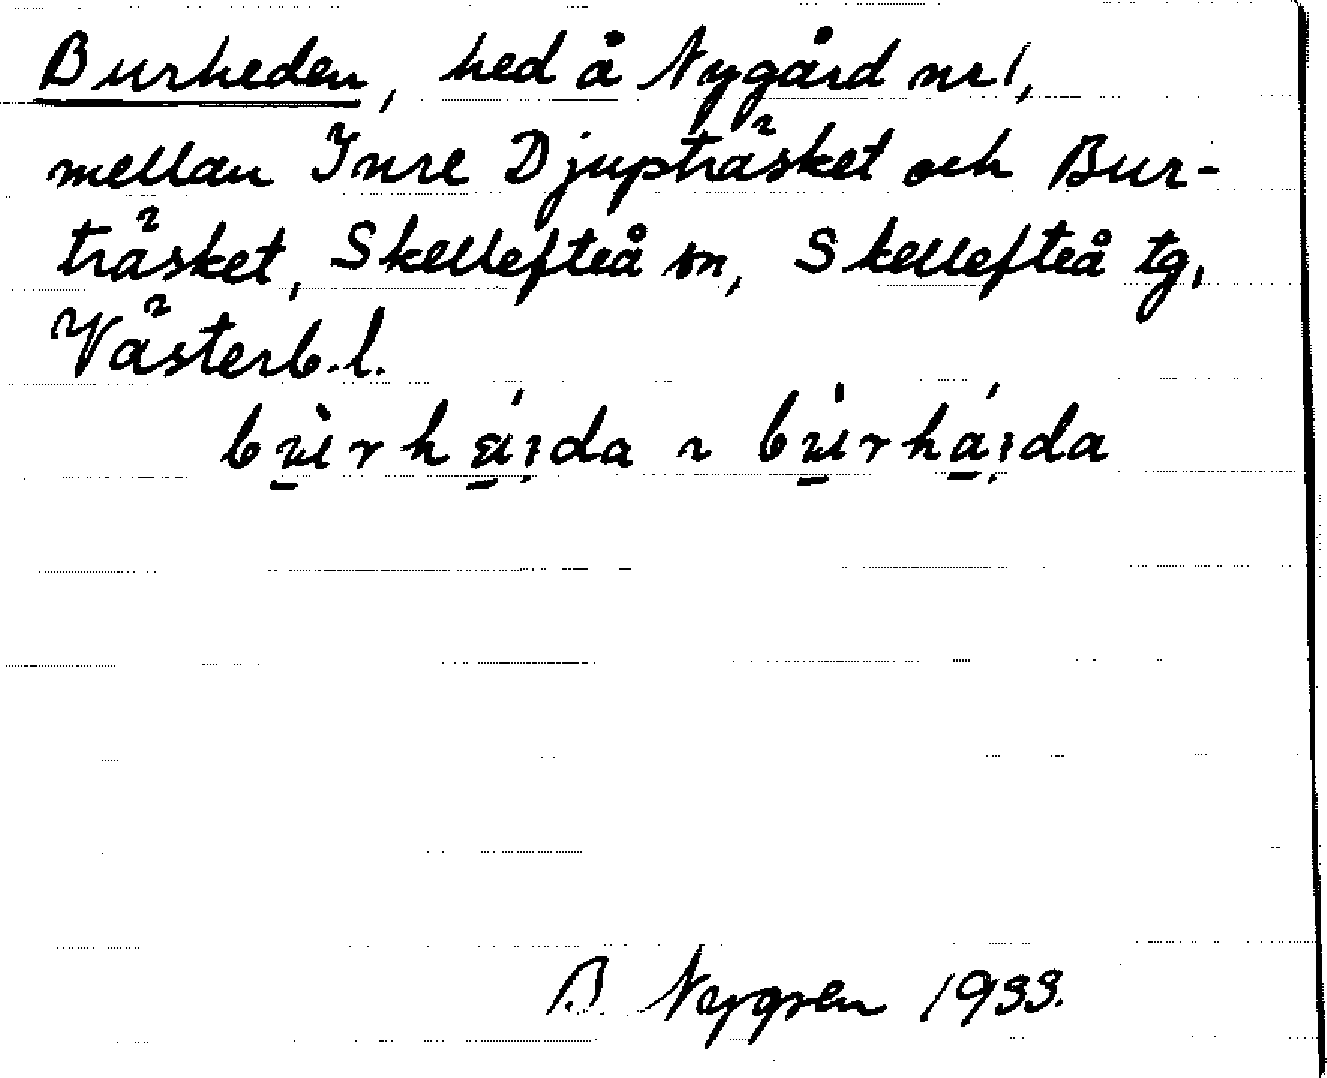 Burheden, hed å Nygård nr 1,
mellan Inre Djupträsket och Bur-
träsket, Skellefteå sn, Skellefteå tg,
Västerb. l.
B. Nygren 1933.